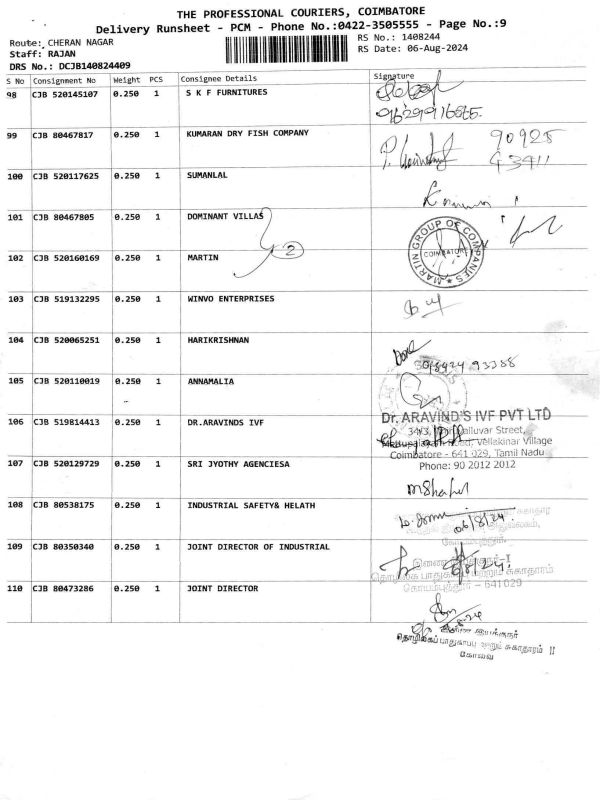 THE PROFESSIONAL COURIERS, COIMBATORE
Delivery Runsheet - PCM - Phone No.:0422-3505555 - Page No.:9
Route: CHERAN NAGAR
RS No.: 1408244
Staff: RAJAN
RS Date: 06-Aug-2024
DRS No.: DCJB140824409
S No Consignment No Weight PCS Consignee Details Signature
98 CJB 520145107 0.250 1 S K F FURNITURES
99 CJB 80467817 0.250 1 KUMARAN DRY FISH COMPANY
90925
43411
100 CJB 520117625 0.250 1 SUMANLAL
101 CJB 80467805 0.250 1 DOMINANT VILLAS
2
102 CJB 520160169 0.250 1 MARTIN
MARTIN GROUP OF COMPANIES
COIMBATORE
103 CJB 519132295 0.250 1 WINVO ENTERPRISES
104 CJB 520065251 0.250 1 HARIKRISHNAN
93388
105 CJB 520110019 0.250 1 ANNAMALIA
106 CJB 519814413 0.250 1 DR.ARAVINDS IVF
Dr. ARAVIND'S IVF PVT LTD
Street,
Road, Vellakinar Village
Coimbatore - 641 029, Tamil Nadu
Phone: 90 2012 2012
107 CJB 520129729 0.250 1 SRI JYOTHY AGENCIESA
108 CJB 80538175 0.250 1 INDUSTRIAL SAFETY& HELATH
06/8/24
109 CJB 80350340 0.250 1 JOINT DIRECTOR OF INDUSTRIAL
சுகாதாரம்
641029
110 CJB 80473286 0.250 1 JOINT DIRECTOR
மற்றும் சுகாதாரம் II
கோவை